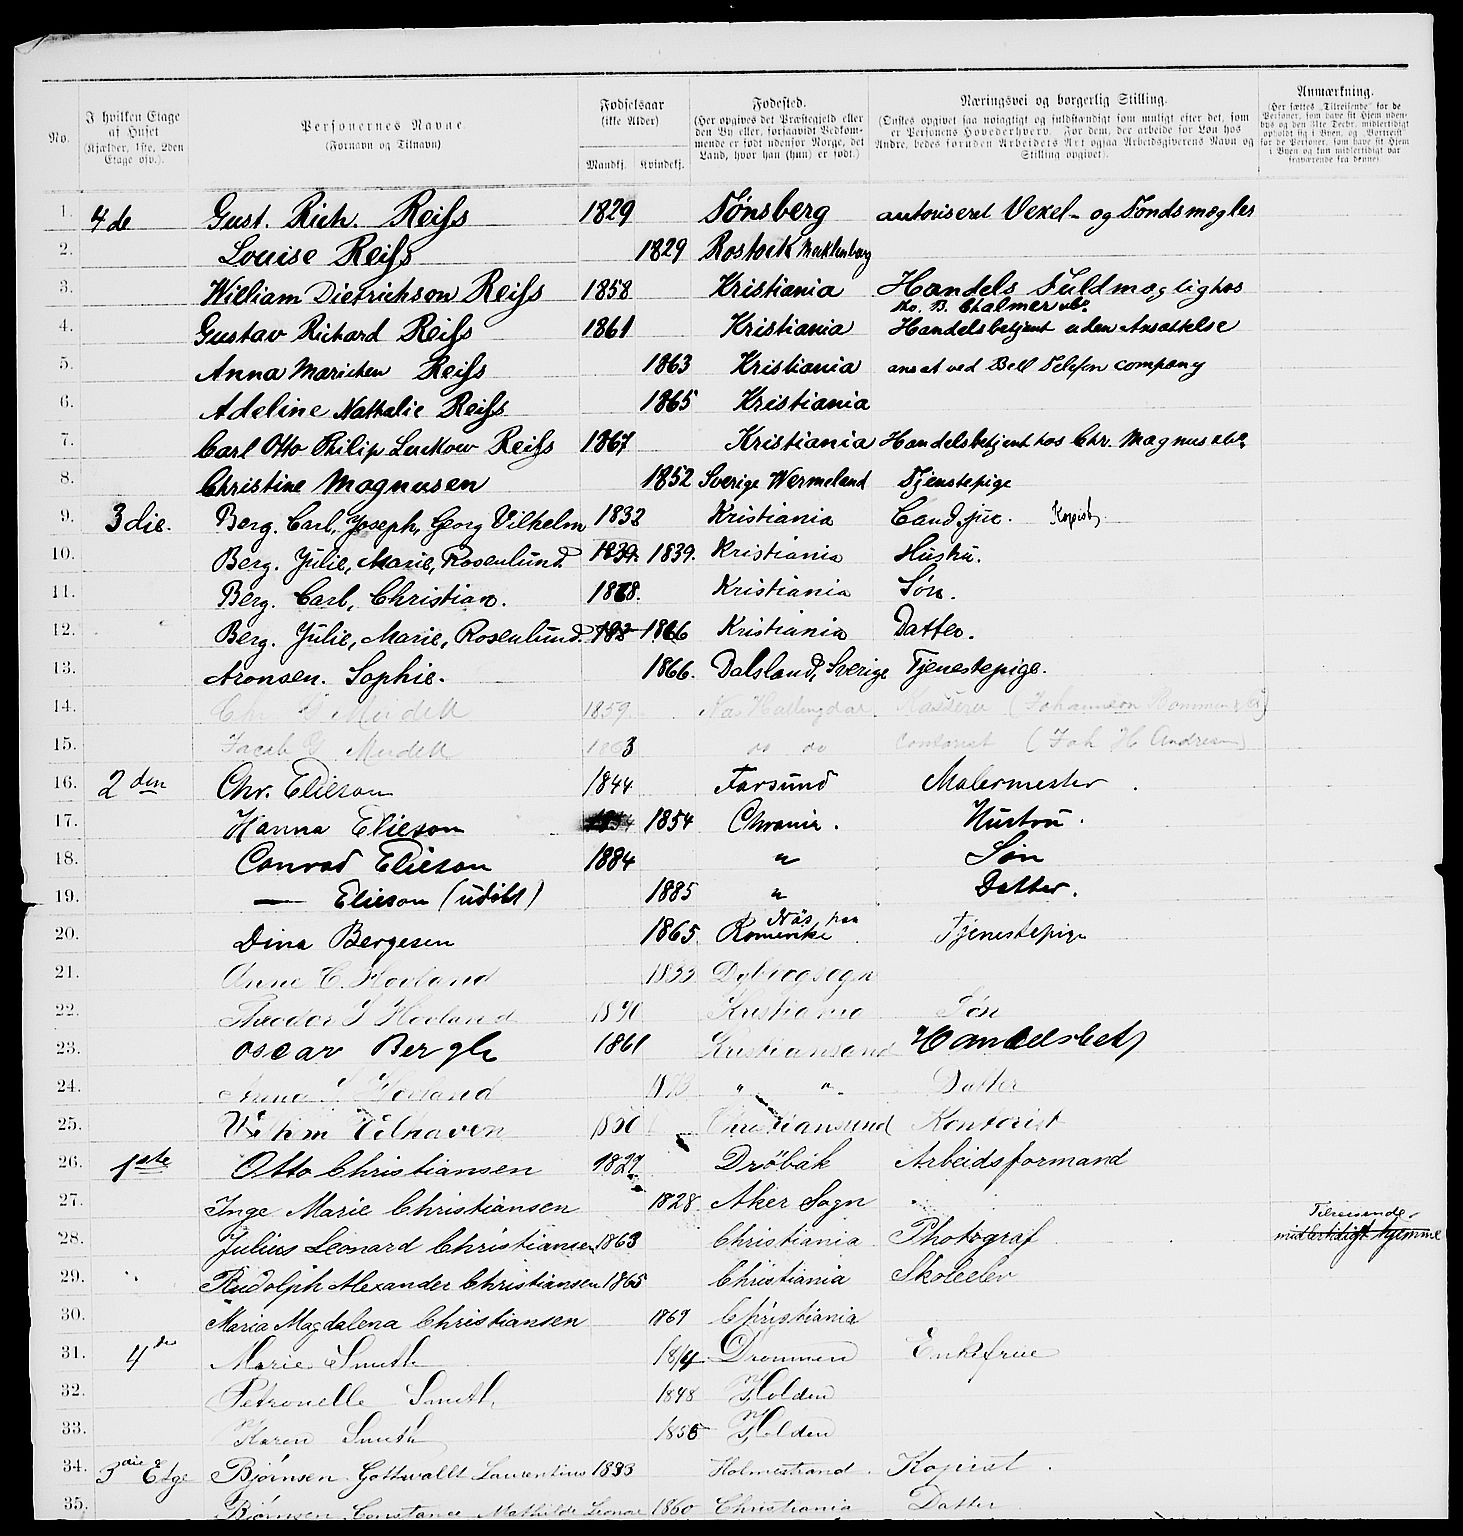 No.
I hvilken Etage af Huset (Kjælder, 1ste, 2den Etage osv.).
Personernes Navne. (Fornavn og Tilnavn)
Fødselsaar (ikke Alder) Mandkj. Kvindekj.
Fødested. (Her opgives det Præstegjeld eller den By eller, forsaavidt Vedkommende er født udenfor Norge, det Land, hvor han (hun) er født.)
Næringsvei og borgerlig Stilling. (Ønskes opgivet saa nøiagtigt og fuldstændigt som muligt efter det, som er Personens Hovederhverv. For dem, der arbeide for Løn hos Andre, bedes foruden Arbeidets Art ogsaa Arbeidsgiverens Navn og Stilling opgivet.)
Anmærkning. (Her sættes „Tilreisende" for de Personer, som have sit Hjem udenbys og den 31te Decbr. midlertidigt opholdt sig i Byen, og „Bortreist" for de Personer, som have sit Hjem i Byen og kun midlertidigt var fraværende fra denne)
1. 4de Gust. Rich. Reiss 1829 Tønsberg autoriseret Vexel- og Fondsmægler
2. Louise Reiss 1829 Rostock Mecklenburg
3. William Dietrichson Reiss 1858 Kristiania Handels Fuldmægtig hos
Tho. B. Chalmer & Co.
4. Gustav Richard Reiss 1861 Kristiania Handelsbetjent uden Ansættelse
5. Anna Marichen Reiss 1863 Kristiania ansat ved Bell Telefon company
6. Adeline Nathalie Reiss 1865 Kristiania
7. Carl Otto Philip Luckow Reiss 1867 Kristiania Handelsbetjent hos Chr. Magnus & Co.
8. Christine Magnusen 1852 Sverige Wermeland Tjenstepige
9. 3die. Berg. Carl, Joseph, Georg Vilhelm 1832 Kristiania Cand. jur. Kopist
10. Berg. Julie, Marie, Rosenlund. 1839. 1839. Kristiania Hustru.
11. Berg. Carl, Christian. 1868. Kristiania Søn.
12. Berg. Julie, Marie, Rosenlund. 1866 Kristiania Datter.
13. Aronsen. Sophie. 1866. Dalsland, Sverige Tjenestepige.
14. Chr. G Meidell 1859. Næs Hallingdal Kasserer (Johannson Bommen & Co)
15. Jacob G Meidell 1863 do do Contorist (Joh H Andresen)
16. 2den Chr. Elieson 1844 Farsund Malermester
17. Hanna Elieson 1854 1854 Chrania. Hustru.
18. Conrad Elieson 1884 " Søn
19. — Elieson (udøbt) 1885 " Datter.
20. Dina Bergesen 1865 Næs paa Romerike Tjenestepige
21. Anne C. Hovland 1833 Dybvogsogn
22. Theodor S Hovland 1870 Kristiania Søn
23. Oscar Bergh 1861 Kristiansand Handelsbetj
24. Anna S Hovland 1873 " " Datter
25. Vilhelm Vilhaven 1860 Christiansund Kontorist
26. 1ste Otto Christiansen 1827 Drøbak Arbeidsformand
27. Inge Marie Christiansen 1828 Aker Sogn "
28. Julius Leonard Christiansen 1863 Christiania Photograf Tilreisende. midlertidigt hjemme
29. Rudolph Alexander Christiansen 1865 Christiania Skoleelev
30. Maria Magdalena Christiansen 1869 Christiania
31. 4de Marie Smith 1814 Drammen Enkefrue
32. Petronelle Smith 1848 Holden
33. Karen Smith 1856 Holden
34. 3die Etge Bjørnsen Gottwallt Laurentius 1833 Holmestrand. Kopist.
35. Bjørnsen Constance Mathilde Leonore 1860 Christiania Datter